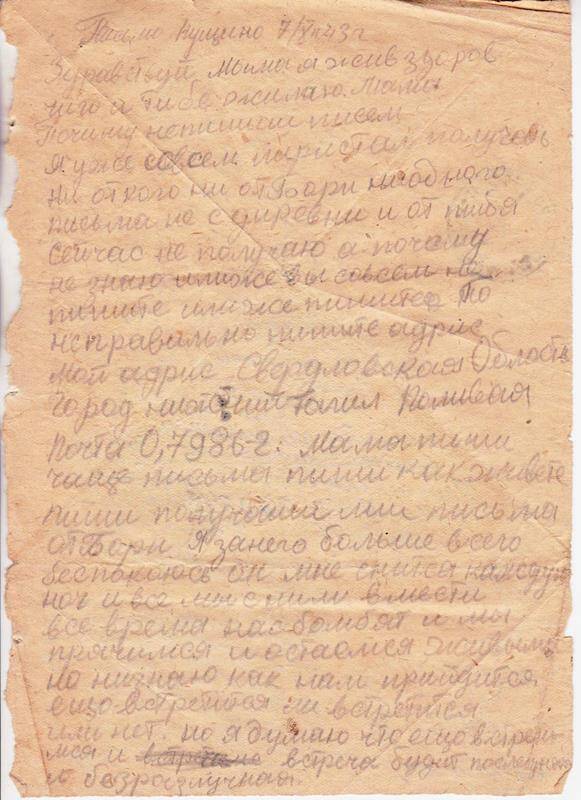 Письмо Кущино 7/X 43г
Здравствуй мама я жив здоров
чего и тибе жилаю. Мама
Почиму непишиш писем
Я уже совсем пиристал получать
ни от кого ни от Бори ниодного
письма не сдыревни и от тибя
сейчас не получаю а почему
не знаю илиже вы совсем не
пишите илиже пишите то
неправильно пишите адрис
мой адрис Свердловская Область
Город нижний Тагил Поливая
Почта 0,7986-г. Мама пиши
чаще письма пиши как живете
пиши получаиш ли письма
от Бори Я занего больше всего
беспокоюсь он мне сница каждую
ноч и все мы с ним вмести
все время нас бомбят и мы
прячимся и остаемся живыми
но низнаю как нам прийдится
ещо встретится ли встретится
или нет. но я думаю что ещо встрети-
мся и встреча будит последняя
и безразлучная.